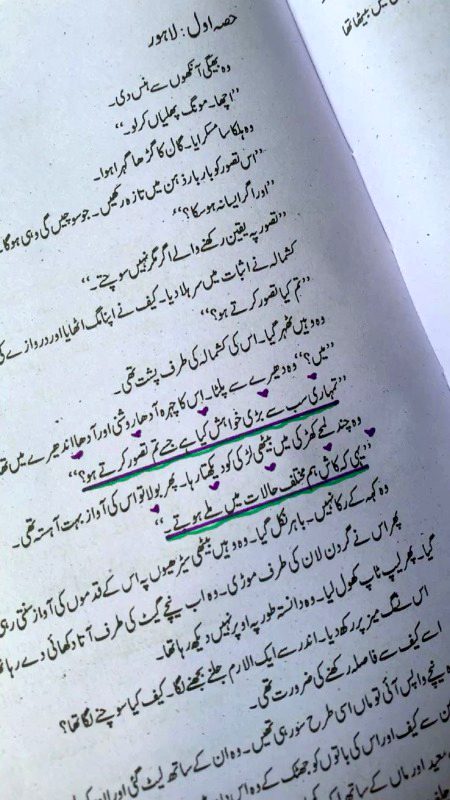 میں بیٹھا تھا
حصہ اول: لاہور
وہ بھیگی آنکھوں سے ہنس دی۔
”اچھا۔ مونگ پھلیاں کر لو۔“
وہ ہلکا سا مسکرایا۔ گال کا گڑھا گہرا ہوا۔
”اس تصور کو بار بار ذہن میں تازہ رکھیں۔ جو سوچیں گی وہی ہوگا۔
”اور اگر ایسا نہ ہو سکا؟“
”تصور پہ یقین رکھنے والے اگر مگر نہیں سوچتے۔“
کشمالہ نے اثبات میں سر ہلا دیا۔ کیف نے اپنا مگ اٹھایا اور دروازے کی
”تم کیا تصور کرتے ہو؟“
وہ وہیں ٹھہر گیا۔ اس کی کشمالہ کی طرف پشت تھی۔
”میں؟“ وہ دھیرے سے پلٹا۔ اس کا چہرہ آدھا روشنی اور آدھا اندھیرے میں تھا
”تمہاری سب سے بڑی خواہش کیا ہے جسے تم تصور کرتے ہو؟“
وہ چند لمحے کھڑکی میں بیٹھی لڑکی کو دیکھتا رہا۔ پھر بولا تو اس کی آواز بہت آہستہ تھی۔
”یہی کہ کاش ہم مختلف حالات میں ملے ہوتے۔“
وہ کہہ کے رکا نہیں۔ باہر نکل گیا۔ وہ وہیں بیٹھی سیڑھیوں پہ اس کے قدموں کی آواز سنتی رہی
پھر اس نے گردن لان کی طرف موڑی۔ وہ اب نیچے گیٹ کی طرف آتا دکھائی دے رہا تھا
گیا۔ پھر لیپ ٹاپ کھول لیا۔ وہ دانستہ طور پہ اوپر نہیں دیکھ رہا تھا۔
اس نے مگ میز پر رکھ دیا۔ اندر سے ایک الارم جلنے بجھنے لگا۔ کیف کیا سوچنے لگا تھا؟
اسے کیف سے فاصلہ رکھنے کی ضرورت تھی۔
نیچے واپس آئی تو ماں اسی طرح سو رہی تھیں۔ وہ ان کے ساتھ لیٹ گئی اور ان کے
سے کیف اور اس کی باتوں کو جھٹک کے وہ اس
سعید اور ماں کے ساتھ